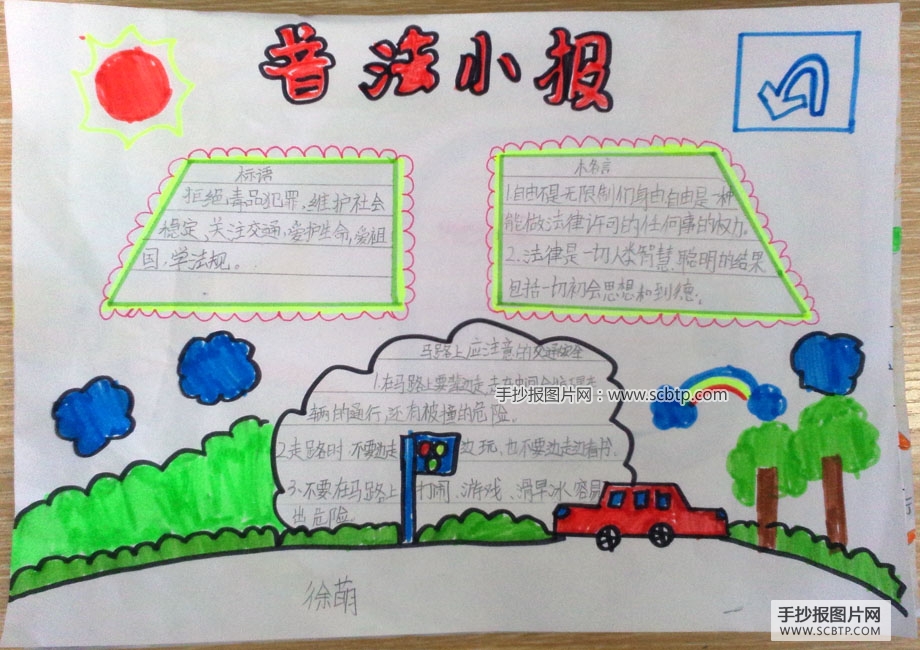 普法小报
标语
拒绝毒品犯罪,维护社会
稳定、关注交通,爱护生命,爱祖
国,学法规。
名言
1.自由不是无限制的自由,自由是一种
能做法律许可的任何事的权力。
2.法律是一切人类智慧聪明的结果
包括一切初会思想和到德。
马路上应注意的交通安全
1.在马路上要靠边走,走在中间会妨碍车
辆的通行,还有被撞的危险。
手抄报图片网:www.scbtp.com
2走路时 不要边走 边玩、也不要边走边看书。
3.不要在马路上 打闹、游戏、滑旱冰,容易
出危险。
徐萌
手抄报图片网
WWW.SCBTP.COM